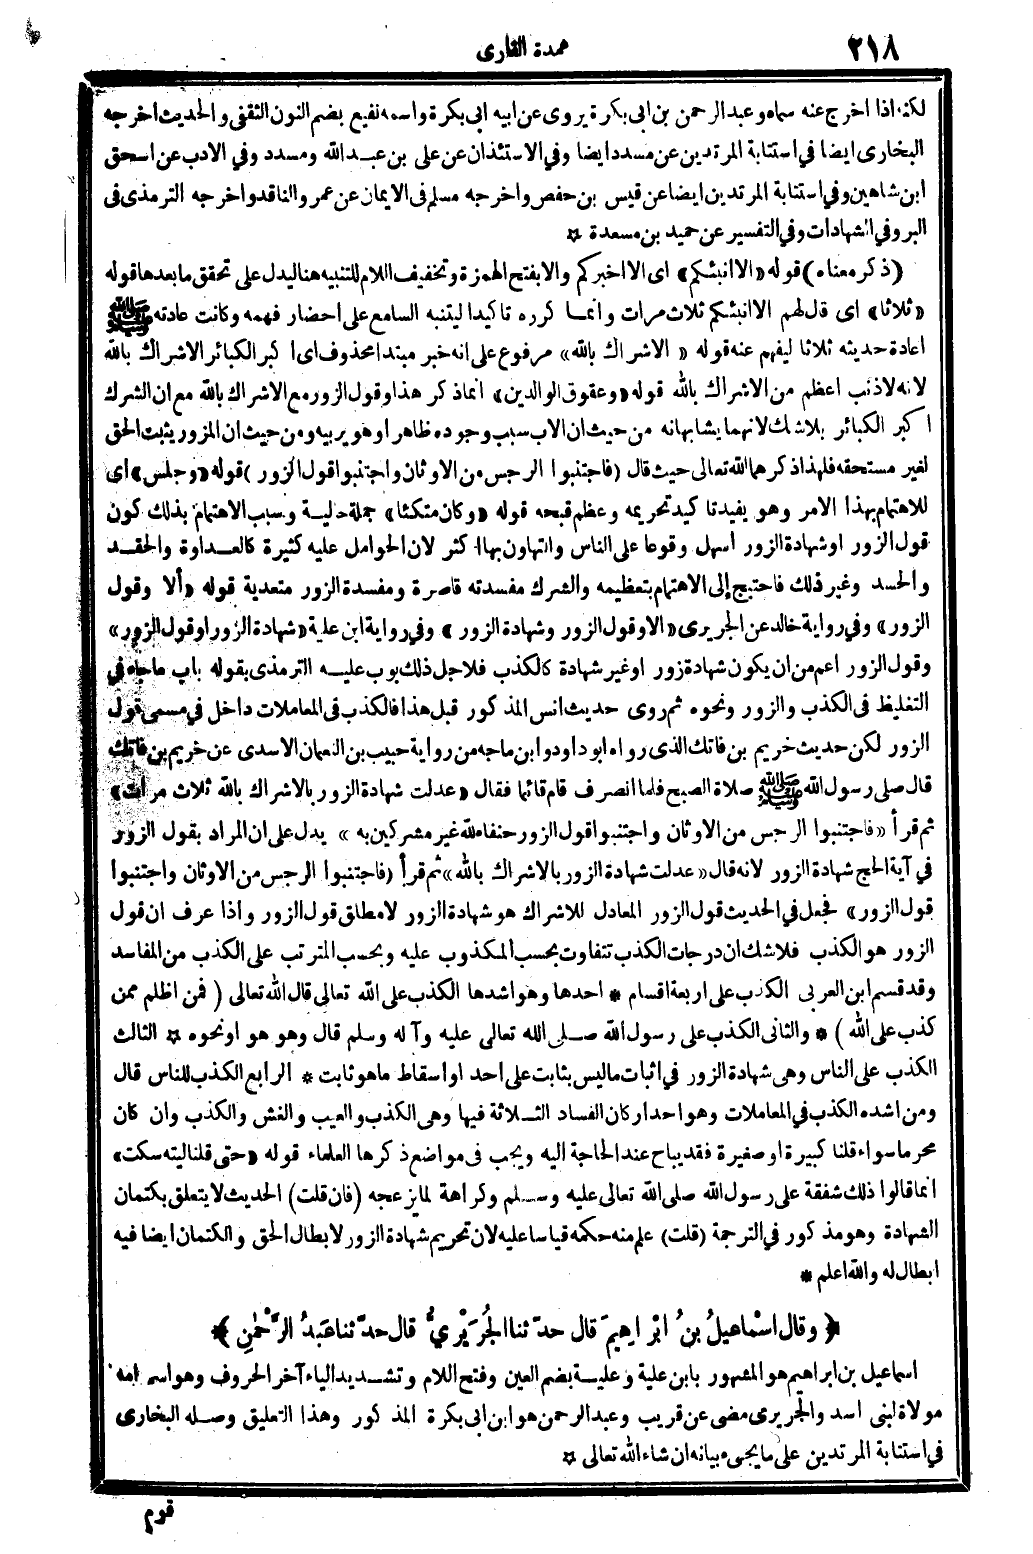 ٢١٨
عمدة القارى
لكنه اذا اخرج عنه سماه وعبد الرحمن بن ابى بكرة يروى عن ابيه ابى بكرة واسمه نفيع بضم النون الثقفى والحديث اخرجه
البخارى ايضا في استتابة المرتدين عن مسدد ايضا وفي الاستئذان عن على بن عبد الله ومسدد وفي الادب عن اسحق
ابن شاهين وفي استتابة المرتدين ايضا عن قيس بن حفص واخرجه مسلم فى الايمان عن عمرو الناقد واخرجه الترمذى فى
البر وفي الشهادات وفي التفسير عن حميد بن مسعدة ☆
(ذكر معناه) قوله «الا انبئكم» اى الا اخبركم والا بفتح الهمزة وتخفيف اللام للتنبيه هنا ليدل على تحقق ما بعدها قوله
«ثلاثا» اى قال لهم الا انبئكم ثلاث مرات وانما كرره تاكيدا ليتنبه السامع على احضار فهمه وكانت عادته ﷺ
اعادة حديثه ثلاثا ليفهم عنه قوله «الاشراك بالله» مرفوع على انه خبر مبتدا محذوف اى اكبر الكبائر الاشراك بالله
لانه لا ذنب اعظم من الاشراك بالله قوله «وعقوق الوالدين» انما ذكر هذا وقول الزور مع الاشراك بالله مع ان الشرك
اكبر الكبائر بلا شك لانهما يشابهانه من حيث ان الاب سبب وجوده ظاهرا وهو يربيه ومن حيث ان المزور يثبت الحق
لغير مستحقه فلهذا ذكرهما الله تعالى حيث قال (فاجتنبوا الرجس من الاوثان واجتنبوا قول الزور) قوله «وجلس» اى
للاهتمام بهذا الامر وهو يفيد تاكيد تحريمه وعظم قبحه قوله «وكان متكئا» جملة حالية وسبب الاهتمام بذلك كون
قول الزور او شهادة الزور اسهل وقوعا على الناس والتهاون بها اكثر لان الحوامل عليه كثيرة كالعداوة والحقد
والحسد وغير ذلك فاحتيج إلى الاهتمام بتعظيمه والشرك مفسدته قاصرة ومفسدة الزور متعدية قوله «ألا وقول
الزور» وفي رواية خالد عن الجريرى «الا وقول الزور وشهادة الزور» وفي رواية ابن علية «شهادة الزور او قول الزور»
وقول الزور اعم من ان يكون شهادة زور او غير شهادة كالكذب فلاجل ذلك بوب عليه الترمذى بقوله باب ما جاء في
التغليظ فى الكذب والزور ونحوه ثم روى حديث انس المذكور قبل هذا فالكذب فى المعاملات داخل في مسمى قول
الزور لكن حديث خريم بن فاتك الذى رواه ابو داود وابن ماجه من رواية حبيب بن النعمان الاسدى عن خريم بن فاتك
قال صلى رسول الله ﷺ صلاة الصبح فلما انصرف قام قائما فقال «عدلت شهادة الزور بالاشراك بالله ثلاث مرات»
ثم قرأ «فاجتنبوا الرجس من الاوثان واجتنبوا قول الزور حنفاء لله غير مشركين به» يدل على ان المراد بقول الزور
في آية الحج شهادة الزور لانه قال «عدلت شهادة الزور بالاشراك بالله» ثم قرأ (فاجتنبوا الرجس من الاوثان واجتنبوا
قول الزور» فجعل في الحديث قول الزور المعادل للاشراك هو شهادة الزور لا مطلق قول الزور واذا عرف ان قول
الزور هو الكذب فلا شك ان درجات الكذب تتفاوت بحسب المكذوب عليه وبحسب المترتب على الكذب من المفاسد
وقد قسم ابن العربى الكذب على اربعة اقسام * احدها وهو اشدها الكذب على الله تعالى قال الله تعالى (فمن اظلم ممن
كذب على الله) * والثانى الكذب على رسول الله صلى الله تعالى عليه وآله وسلم قال وهو هو او نحوه ☆ الثالث
الكذب على الناس وهى شهادة الزور في اثبات ما ليس بثابت على احد او اسقاط ما هو ثابت * الرابع الكذب للناس قال
ومن اشده الكذب في المعاملات وهو احد اركان الفساد الثلاثة فيها وهى الكذب والعيب والغش والكذب وان كان
محرما سواء قلنا كبيرة او صغيرة فقد يباح عند الحاجة اليه ويجب فى مواضع ذكرها العلماء قوله «حتى قلنا ليته سكت»
انما قالوا ذلك شفقة على رسول الله صلى الله تعالى عليه وسلم وكراهة لما يزعجه (فان قلت) الحديث لا يتعلق بكتمان
الشهادة وهو مذكور في الترجمة (قلت) علم منه حكمه قياسا عليه لان تحريم شهادة الزور لابطال الحق والكتمان ايضا فيه
ابطال له والله اعلم *
﴿ وقال اسْماعيلُ بنُ ابْراهيمَ قال حدّثنا الجُرَيْرِيُّ قال حدّثنا عَبدُ الرَّحْمٰنِ ﴾
اسماعيل بن ابراهيم هو المشهور بابن علية وعلية بضم العين وفتح اللام وتشديد الياء آخر الحروف وهو اسم امه
مولاة لبنى اسد والجريرى مضى عن قريب وعبد الرحمن هو ابن ابى بكرة المذكور وهذا التعليق وصله البخارى
في استتابة المرتدين على ما يجىء بيانه ان شاء الله تعالى ☆
قوم